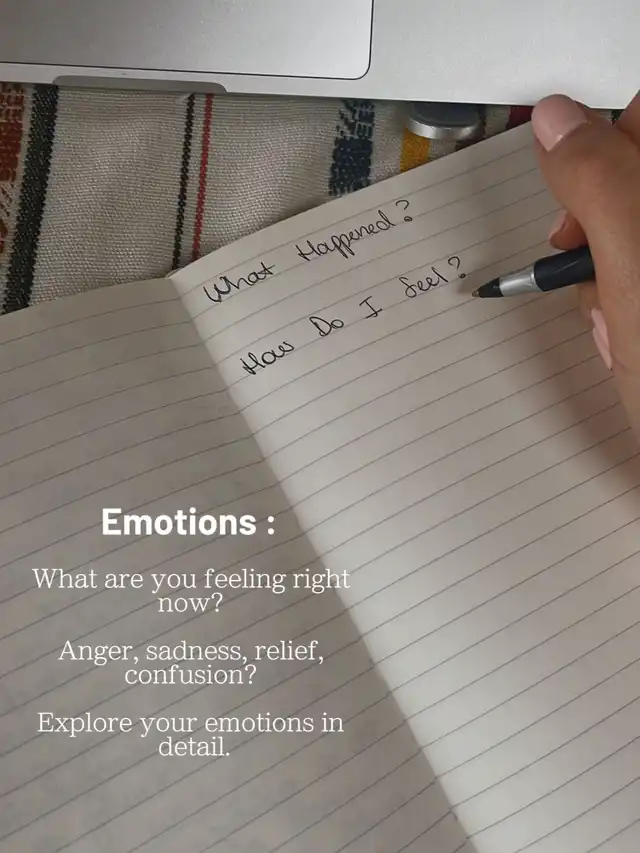 What Happened?
How Do I feel?
Emotions :
What are you feeling right
now?
Anger, sadness, relief,
confusion?
Explore your emotions in
detail.